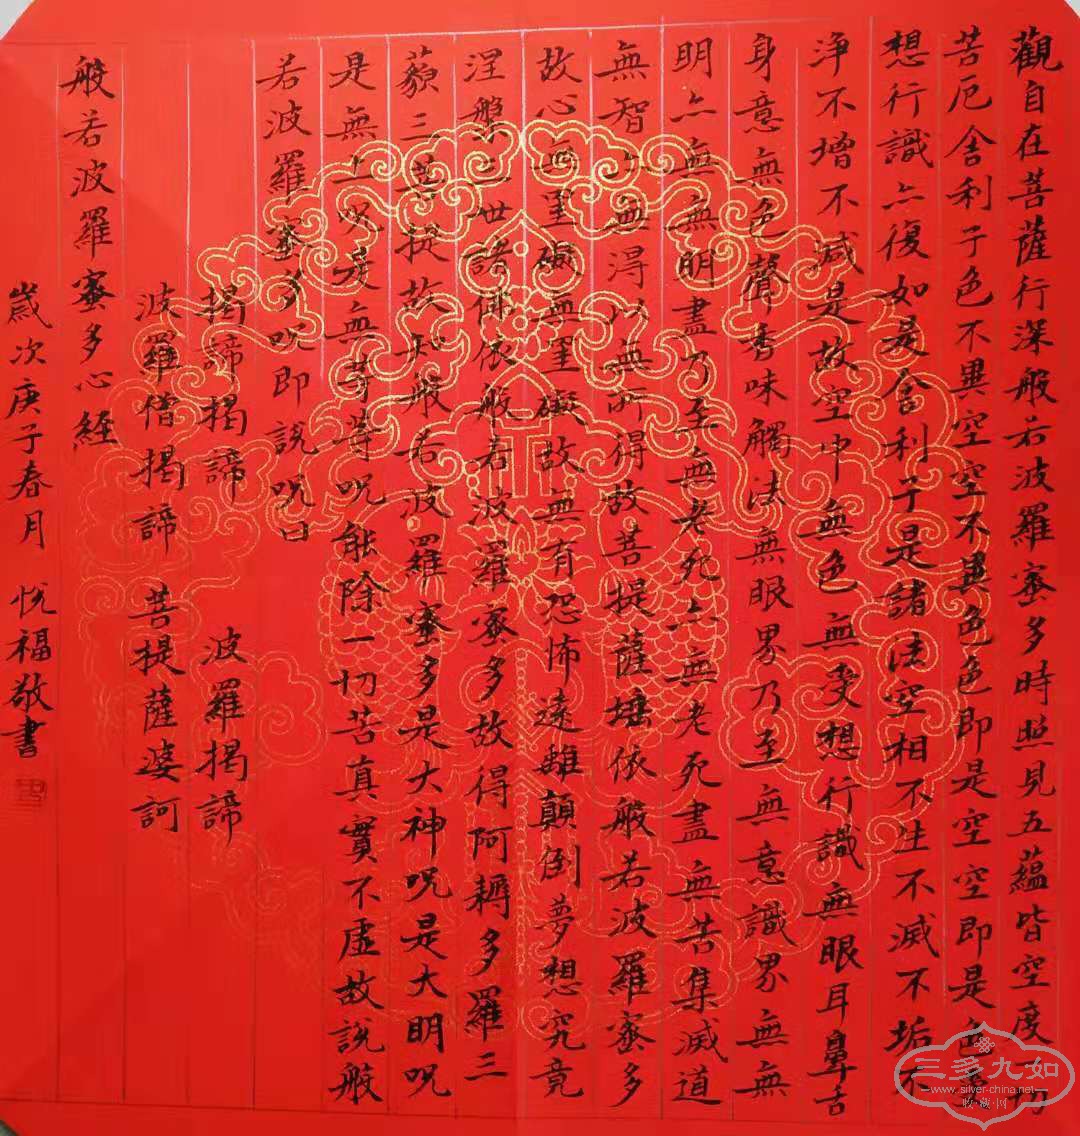 觀自在菩薩行深般若波羅蜜多時照見五蘊皆空度一切
苦厄舍利子色不異空空不異色色即是空空即是色受
想行識亦復如是舍利子是諸法空相不生不滅不垢不
淨不增不減是故空中無色無受想行識無眼耳鼻舌
身意無色聲香味觸法無眼界乃至無意識界無無
明亦無無明盡乃至無老死亦無老死盡無苦集滅道
無智亦無得以無所得故菩提薩埵依般若波羅蜜多
故心無罣礙無罣礙故無有恐怖遠離顛倒夢想究竟
涅槃三世諸佛依般若波羅蜜多故得阿耨多羅三
藐三菩提故知般若波羅蜜多是大神咒是大明咒
是無上咒是無等等咒能除一切苦真實不虛故說般
若波羅蜜多咒即說咒曰
揭諦揭諦 波羅揭諦
波羅僧揭諦 菩提薩婆訶
般若波羅蜜多心經
歲次庚子春月 悅福敬書
三多九如
www.silver-china.net
收藏·网